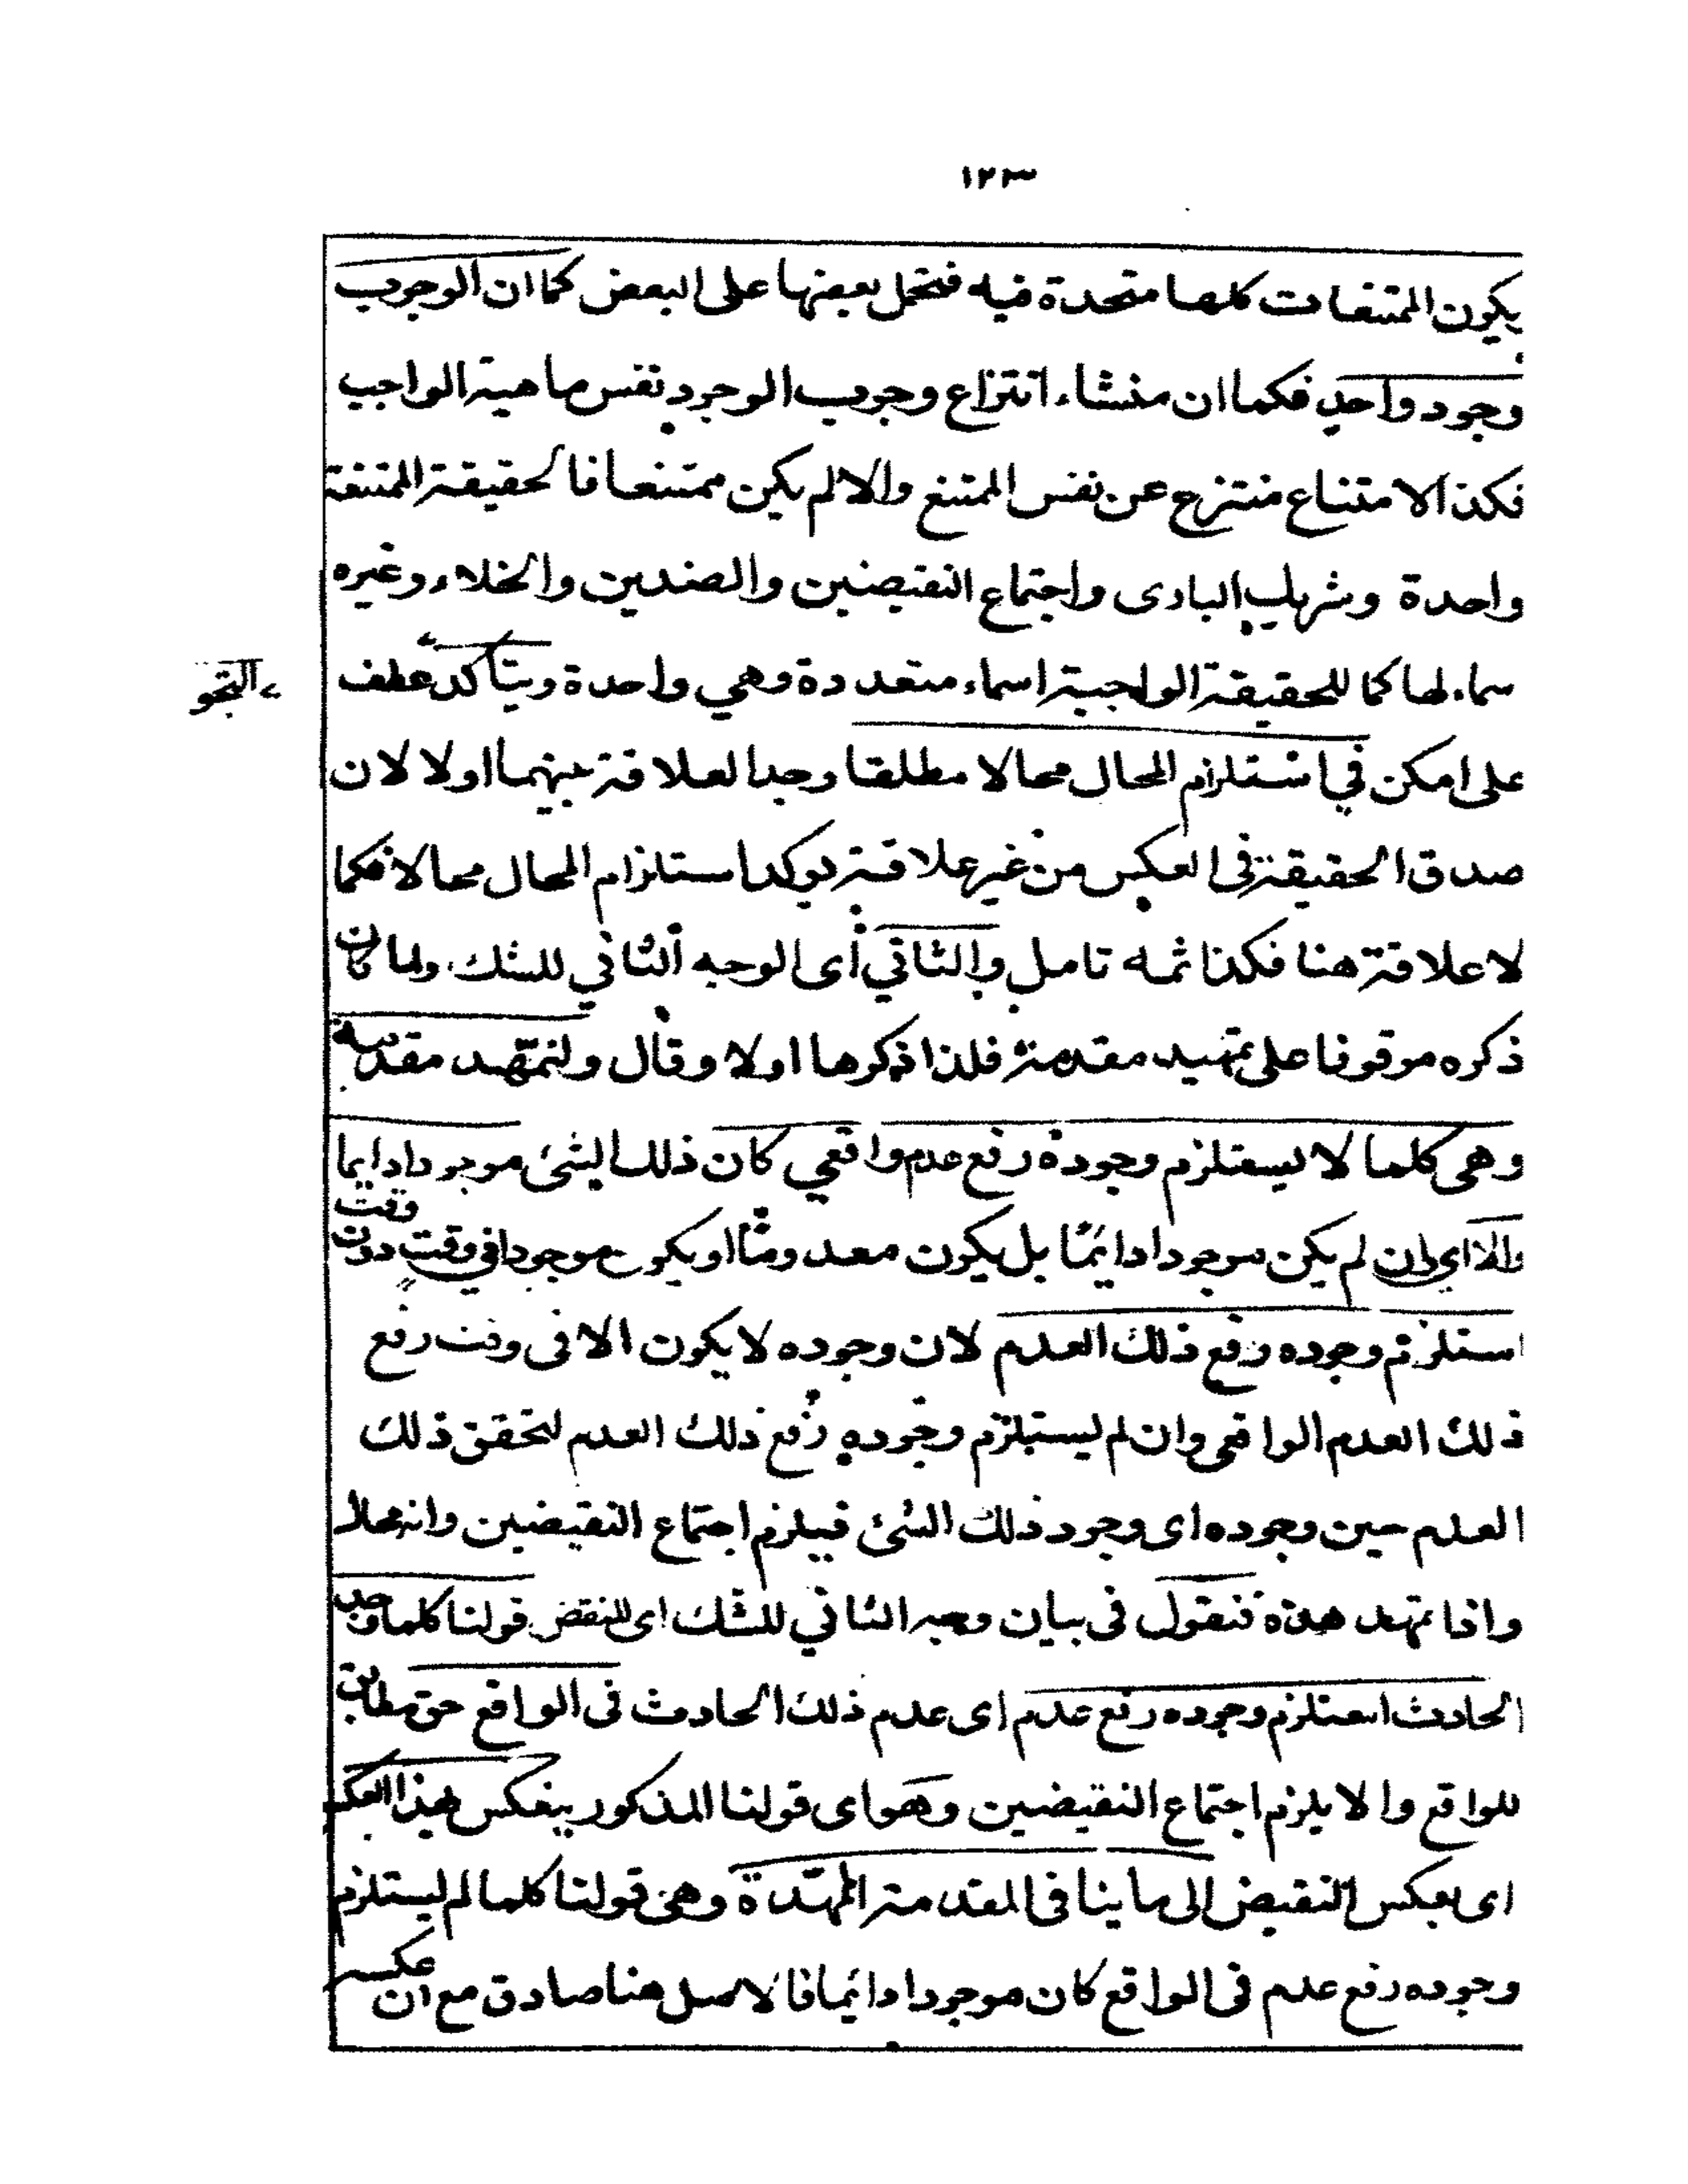 ١٢٣
يكون الممتنعات كلها متحدة فيه فتحمل بعضها على البعض كما ان الوجوب
وجود واحد فكما ان منشاء انتزاع وجوب الوجود نفس ماهية الواجب
فكذا الامتناع منتزع عن نفس الممتنع والا لم يكن ممتنعا فالحقيقة الممتنعة
واحدة وشريك البارى واجتماع النقيضين والضدين والخلاء وغيره
سماء لها كما للحقيقة الواجبية اسماء متعددة وهي واحدة ويتأكد عطف
التجو
على امكن في استلزام المحال محالا مطلقا وجدا لعلاقة بينهما اولا لان
صدق الحقيقة في العكس من غير علاقة يوكد استلزام المحال محالا فكما
لا علاقة هنا فكذا ثمه تامل والثاني أى الوجه الثاني للشك ولما كان
ذكره موقوفا على تمهيد مقدمة فلذا ذكرها اولا وقال ولنمهد مقدمة
وهى كلما لا يستلزم وجوده رفع عدم واقعي كان ذلك الشئ موجودا دايما
والا اي وان لم يكن موجودا دائما بل يكون معدوما او يكون موجودا في وقت دون وقت
استلزم وجوده رفع ذلك العدم لان وجوده لا يكون الا فى وقت رفع
ذلك العدم الواقعى وان لم يستلزم وجوده رفع ذلك العدم لتحقق ذلك
العدم حين وجوده اى وجود ذلك الشئ فيلزم اجتماع النقيضين وانه محال
واذا تمهد هذه فنقول فى بيان وجه الثاني للشك اى للنقض قولنا كلما وجد
الحادث استلزم وجوده رفع عدم اى عدم ذلك الحادث فى الواقع حق مطابق
للواقع والا يلزم اجتماع النقيضين وهو اى قولنا المذكور ينعكس بهذا العكس
اى بعكس النقيض الى ما ينافى المقدمة الممهدة وهى قولنا كلما لم يستلزم
وجوده رفع عدم فى الواقع كان موجودا دائما فالاصل هنا صادق مع ان عكسه